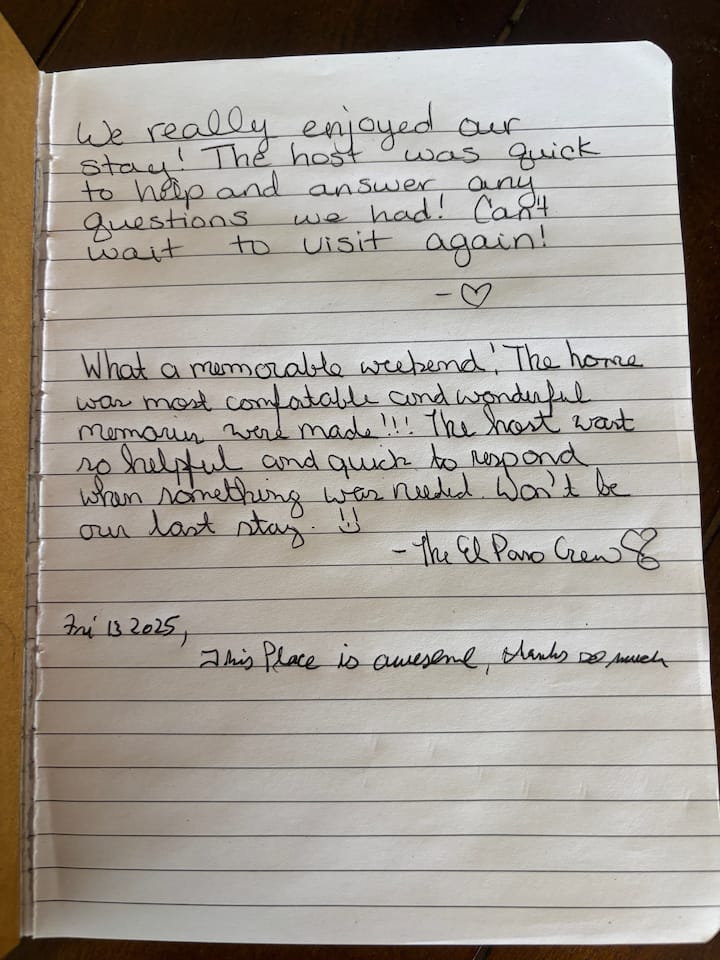 We really enjoyed our
stay! The host was quick
to help and answer any
questions we had! Can't
wait to visit again!
- ♡
What a memorable weekend! The home
was most comfortable and wonderful
memories were made!!! The host wast
so helpful and quick to respond
when something was needed. Won't be
our last stay. !!
- The El Paso Crew ♡
Fri 13 2025,
This Place is awesome, thanks so much